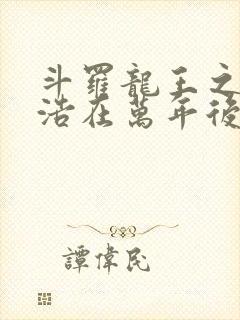 斗羅龍王之
浩在萬年後
譚偉民